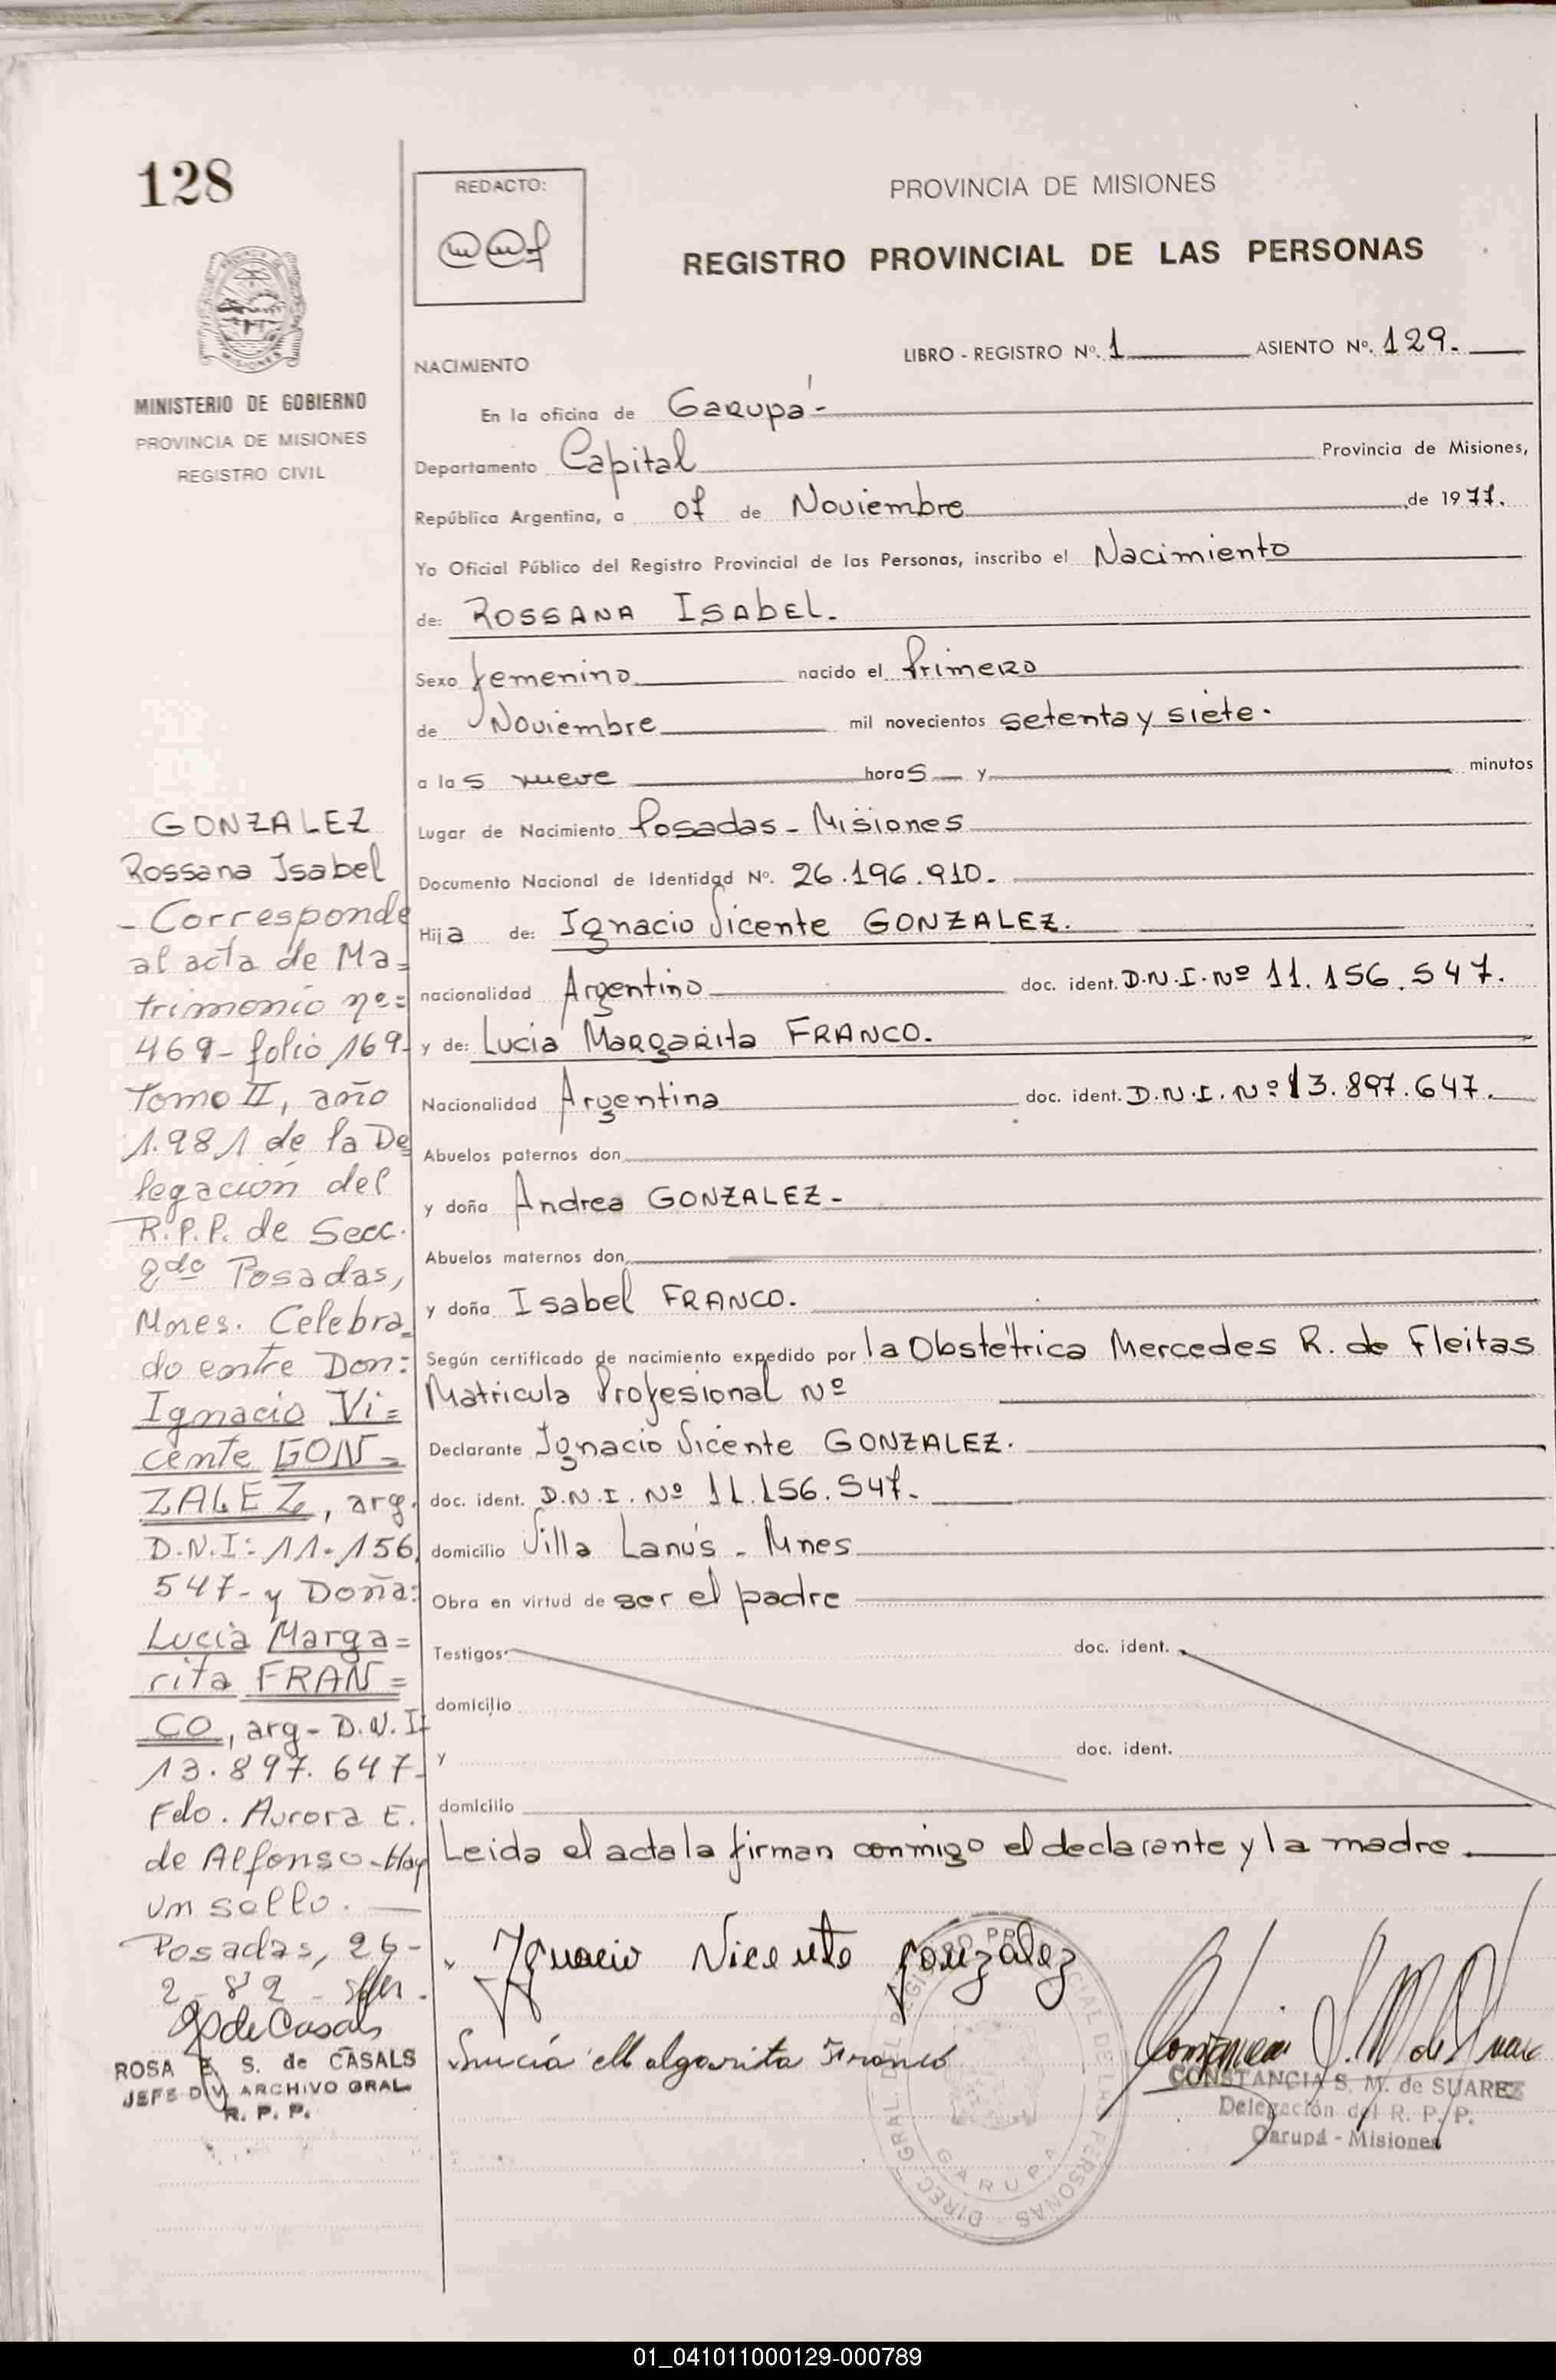 128
MINISTERIO DE GOBIERNO
PROVINCIA DE MISIONES
REGISTRO CIVIL
REDACTO:
PROVINCIA DE MISIONES
REGISTRO PROVINCIAL DE LAS PERSONAS
LIBRO - REGISTRO Nº. 1 ASIENTO Nº. 129.
NACIMIENTO
En la oficina de Garupá-
Departamento Capital Provincia de Misiones,
República Argentina, a 07 de Noviembre de 1977.
Yo Oficial Público del Registro Provincial de las Personas, inscribo el Nacimiento
de: ROSSANA ISAbEL.
Sexo femenino nacido el Primero
de Noviembre mil novecientos setenta y siete.
a las nueve horas y minutos
Lugar de Nacimiento Posadas - Misiones
Documento Nacional de Identidad Nº. 26.196.910.
Hija de: Ignacio Vicente GONZALEZ.
nacionalidad Argentino doc. ident. D.N.I. Nº 11.156.547.
y de: Lucia Margarita FRANCO.
Nacionalidad Argentina doc. ident. D.N.I. Nº 13.897.647.
Abuelos paternos don
y doña Andrea GONZALEZ-
Abuelos maternos don
y doña Isabel FRANCO.
Según certificado de nacimiento expedido por la Obstétrica Mercedes R. de Fleitas
Matricula Profesional Nº
Declarante Ignacio Vicente GONZALEZ.
doc. ident. D.N.I. Nº 11.156.547.
domicilio Villa Lanús - Mnes
Obra en virtud de ser el padre
Testigos doc. ident.
domicilio
y doc. ident.
domicilio
Leida el acta la firman conmigo el declarante y la madre.
Ignacio Vicente gonzalez
Lucía Malgarita Franco
CONSTANCIA S. M. de SUAREZ
Delegación del R. P. P.
Garupá - Misiones
DIREC. GRAL. DEL REGISTRO PROVINCIAL DE LAS PERSONAS
GARUPA
GONZALEZ
Rossana Isabel
- Corresponde
al acta de Ma=
trimonio nº=
469- folio 169-
Tomo II, año
1.981 de la De
legación del
R.P.P. de Secc.
2do Posadas,
Mnes. Celebra=
do entre Don:
Ignacio Vi=
cente GON=
ZALEZ, arg.
D.N.I: 11.156.
547- y Doña:
Lucia Marga=
rita FRAN=
CO, arg- D.N.I
13.897.647-
Fdo. Aurora E.
de Alfonso-Hay
un sello.
Posadas, 26-
2-82-
de Casals
ROSA E. S. de CASALS
JEFE DIV. ARCHIVO GRAL.
R. P. P.
01_041011000129-000789